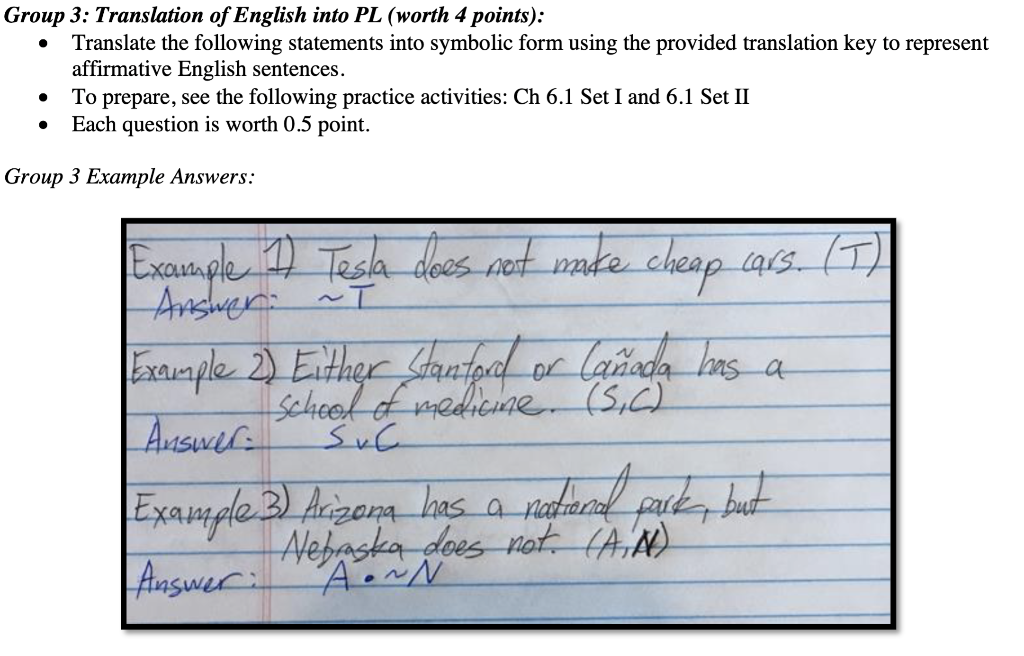 Group 3: Translation of English into PL (worth 4 points):
• Translate the following statements into symbolic form using the provided translation key to represent
affirmative English sentences.
• To prepare, see the following practice activities: Ch 6.1 Set I and 6.1 Set II
• Each question is worth 0.5 point.
Group 3 Example Answers:
Example 1) Tesla does not make cheap cars. (T)
Answer: ~T
Example 2) Either Stanford or Cañada has a
school of medicine. (S,C)
Answer: S v C
Example 3) Arizona has a national park, but
Nebraska does not. (A,N)
Answer: A • ~N